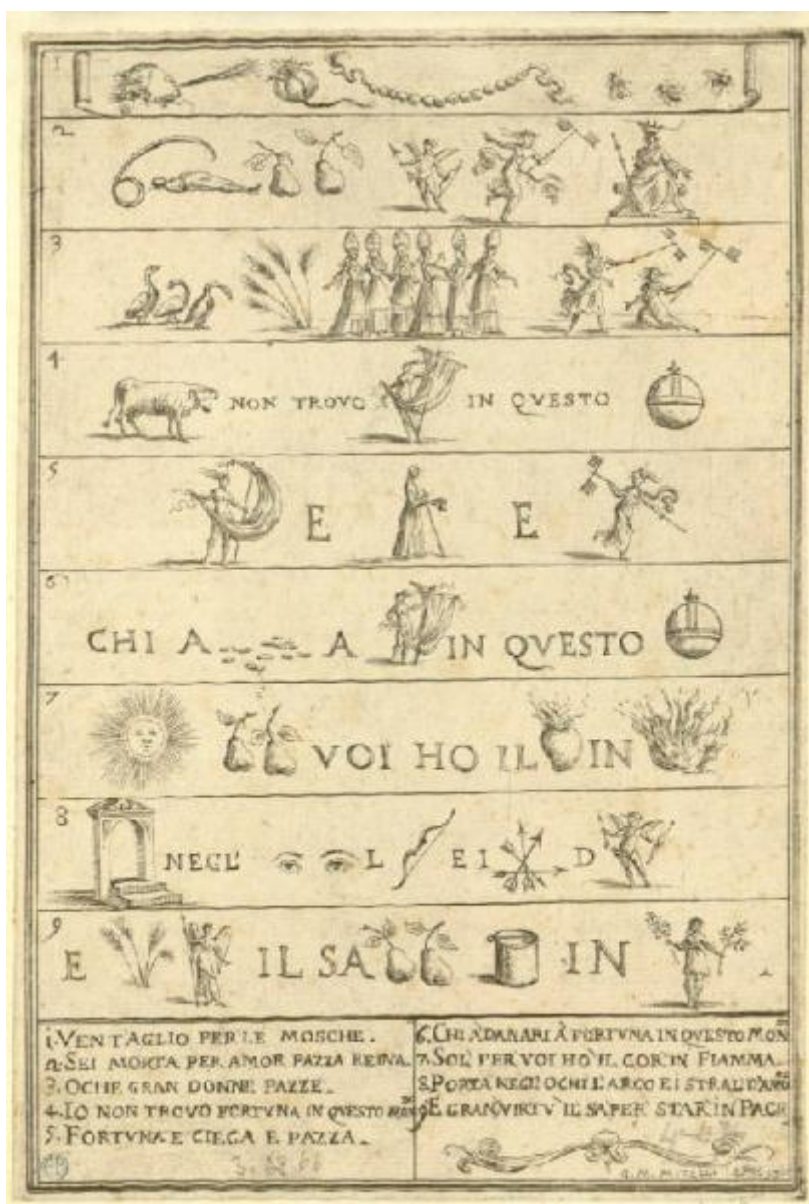 1
2
3
4
NON TROVO IN QVESTO
5
E E
6
CHI A A IN QVESTO
7
VOI HO IL IN
8
NEGL' L E I D
9
E IL SA IN
1. VENTAGLIO PER LE MOSCHE.
2. SEI MORTA PER AMOR PAZZA REINA.
3. OCHE GRAN DONNE PAZZE.
4. IO NON TROVO FORTVNA IN QVESTO MON
5. FORTVNA E CIECA E PAZZA.
6. CHI A DANARI À FORTVNA IN QVESTO MON
7. SOL' PER VOI HO' IL COR IN FIAMMA.
8. PORTA NEGL'OCHI L'ARCO E I STRAL D'AMO
9. E GRAN VIRTV' IL SAPER STAR IN PACE
G. M. MITELLI